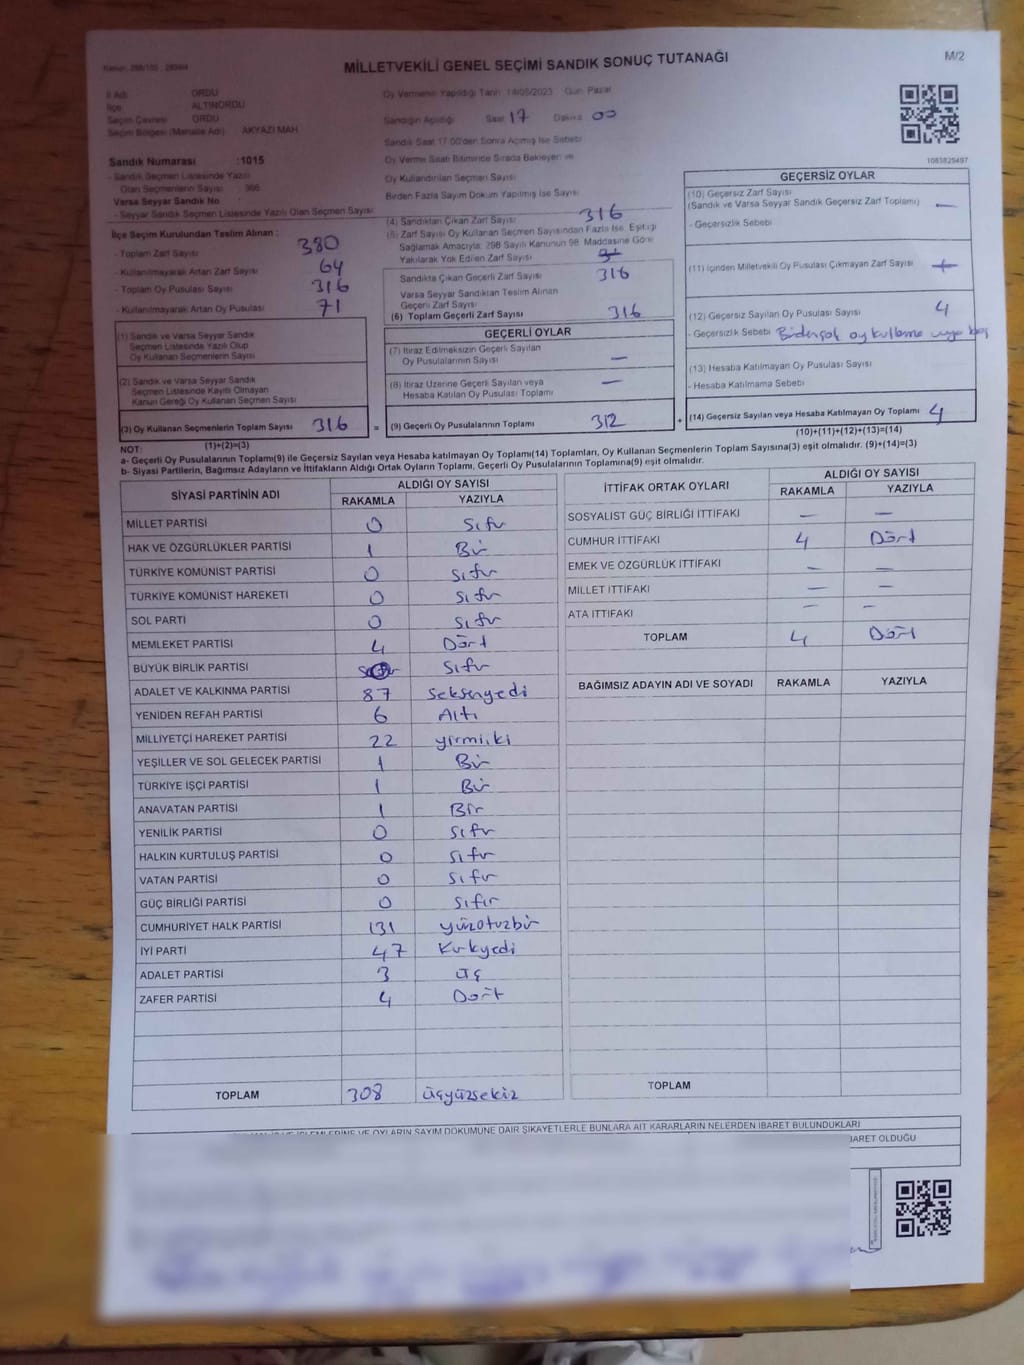 MİLLETVEKİLİ GENEL SEÇİMİ SANDIK SONUÇ TUTANAĞI
M/2
İl Adı ORDU
İlçe ALTINORDU
Seçim Çevresi ORDU
Seçim Bölgesi (Mahalle Adı) AKYAZI MAH
Sandık Numarası :1015
- Sandık Seçmen Listesinde Yazılı
Olan Seçmenlerin Sayısı 366
Varsa Seyyar Sandık No
- Seyyar Sandık Seçmen Listesinde Yazılı Olan Seçmen Sayısı
Oy Vermenin Yapıldığı Tarih 14/05/2023 Gün Pazar
Sandığın Açıldığı Saat 17 Dakika 00
Sandık Saat 17.00'den Sonra Açılmış İse Sebebi
Oy Verme Saati Bitiminde Sırada Bekleyen ve
Oy Kullandırılan Seçmen Sayısı
Birden Fazla Sayım Döküm Yapılmış İse Sayısı
1083829497
İlçe Seçim Kurulundan Teslim Alınan :
- Toplam Zarf Sayısı 380
- Kullanılmayarak Artan Zarf Sayısı 64
- Toplam Oy Pusulası Sayısı 316
- Kullanılmayarak Artan Oy Pusulası 71
(1) Sandık ve Varsa Seyyar Sandık
Seçmen Listesinde Yazılı Olup
Oy Kullanan Seçmenlerin Sayısı
(2) Sandık ve Varsa Seyyar Sandık
Seçmen Listesinde Kayıtlı Olmayan
Kanun Gereği Oy Kullanan Seçmen Sayısı
(3) Oy Kullanan Seçmenlerin Toplam Sayısı 316 =
(1)+(2)=(3)
(4) Sandıktan Çıkan Zarf Sayısı 316
(5) Zarf Sayısı Oy Kullanan Seçmen Sayısından Fazla İse, Eşitliği
Sağlamak Amacıyla, 298 Sayılı Kanunun 98. Maddesine Göre
Yakılarak Yok Edilen Zarf Sayısı
Sandıkta Çıkan Geçerli Zarf Sayısı 316
Varsa Seyyar Sandıktan Teslim Alınan
Geçerli Zarf Sayısı
(6) Toplam Geçerli Zarf Sayısı 316
GEÇERLİ OYLAR
(7) İtiraz Edilmeksizin Geçerli Sayılan
Oy Pusulalarının Sayısı —
(8) İtiraz Üzerine Geçerli Sayılan veya
Hesaba Katılan Oy Pusulası Toplamı —
(9) Geçerli Oy Pusulalarının Toplamı 312 +
GEÇERSİZ OYLAR
(10) Geçersiz Zarf Sayısı
(Sandık ve Varsa Seyyar Sandık Geçersiz Zarf Toplamı) —
- Geçersizlik Sebebi
(11) İçinden Milletvekili Oy Pusulası Çıkmayan Zarf Sayısı
(12) Geçersiz Sayılan Oy Pusulası Sayısı 4
- Geçersizlik Sebebi oy kullanma
(13) Hesaba Katılmayan Oy Pusulası Sayısı
- Hesaba Katılmama Sebebi
(14) Geçersiz Sayılan veya Hesaba Katılmayan Oy Toplamı 4
(10)+(11)+(12)+(13)=(14)
NOT:
a- Geçerli Oy Pusulalarının Toplamı(9) ile Geçersiz Sayılan veya Hesaba katılmayan Oy Toplamı(14) Toplamları, Oy Kullanan Seçmenlerin Toplam Sayısına(3) eşit olmalıdır. (9)+(14)=(3)
b- Siyasi Partilerin, Bağımsız Adayların ve İttifakların Aldığı Ortak Oyların Toplamı, Geçerli Oy Pusulalarının Toplamına(9) eşit olmalıdır.
SİYASİ PARTİNİN ADI ALDIĞI OY SAYISI
RAKAMLA YAZIYLA
MİLLET PARTİSİ 0 Sıfır
HAK VE ÖZGÜRLÜKLER PARTİSİ 1 Bir
TÜRKİYE KOMÜNİST PARTİSİ 0 Sıfır
TÜRKİYE KOMÜNİST HAREKETİ 0 Sıfır
SOL PARTİ 0 Sıfır
MEMLEKET PARTİSİ 4 Dört
BÜYÜK BİRLİK PARTİSİ Sıfır
ADALET VE KALKINMA PARTİSİ 87 Seksenyedi
YENİDEN REFAH PARTİSİ 6 Altı
MİLLİYETÇİ HAREKET PARTİSİ 22 yirmiiki
YEŞİLLER VE SOL GELECEK PARTİSİ 1 Bir
TÜRKİYE İŞÇİ PARTİSİ 1 Bir
ANAVATAN PARTİSİ 1 Bir
YENİLİK PARTİSİ 0 Sıfır
HALKIN KURTULUŞ PARTİSİ 0 Sıfır
VATAN PARTİSİ 0 Sıfır
GÜÇ BİRLİĞİ PARTİSİ 0 Sıfır
CUMHURİYET HALK PARTİSİ 131 yüzotuzbir
İYİ PARTİ 47 Kırkyedi
ADALET PARTİSİ 3 üç
ZAFER PARTİSİ 4 Dört
TOPLAM 308 üçyüzsekiz
İTTİFAK ORTAK OYLARI ALDIĞI OY SAYISI
RAKAMLA YAZIYLA
SOSYALİST GÜÇ BİRLİĞİ İTTİFAKI — —
CUMHUR İTTİFAKI 4 Dört
EMEK VE ÖZGÜRLÜK İTTİFAKI — —
MİLLET İTTİFAKI — —
ATA İTTİFAKI — —
TOPLAM 4 Dört
BAĞIMSIZ ADAYIN ADI VE SOYADI RAKAMLA YAZIYLA
TOPLAM
VE OYLARIN SAYIM DÖKÜMÜNE DAİR ŞİKAYETLERLE BUNLARA AİT KARARLARIN NELERDEN İBARET BULUNDUKLARI
İBARET OLDUĞU